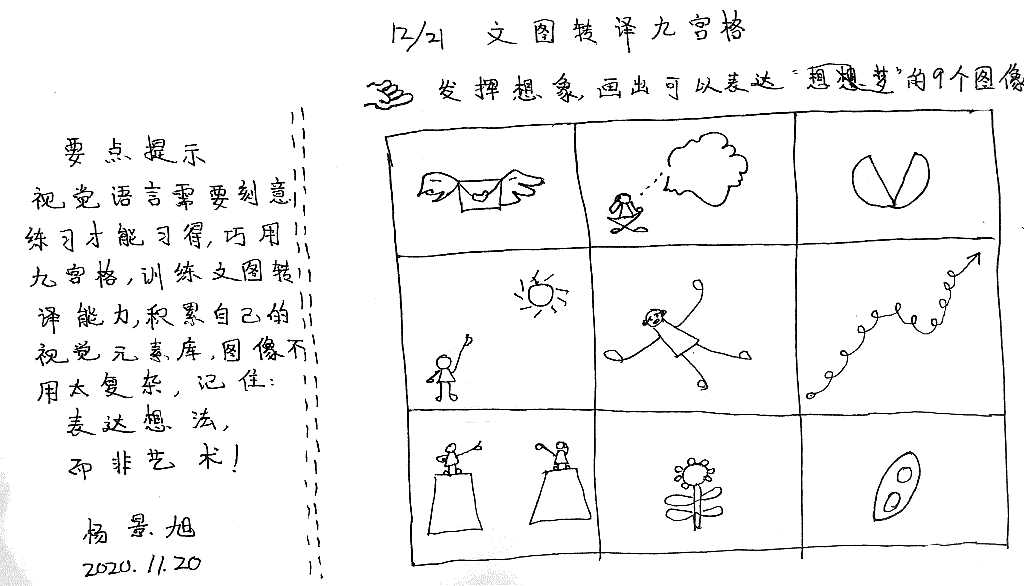 12/21 文图转译九宫格
发挥想象,画出可以表达“想想梦”的9个图像
要点提示
视觉语言需要刻意
练习才能习得,巧用
九宫格,训练文图转
译能力,积累自己的
视觉元素库,图像不
用太复杂,记住:
表达想法,
而非艺术!
杨景旭
2020.11.20